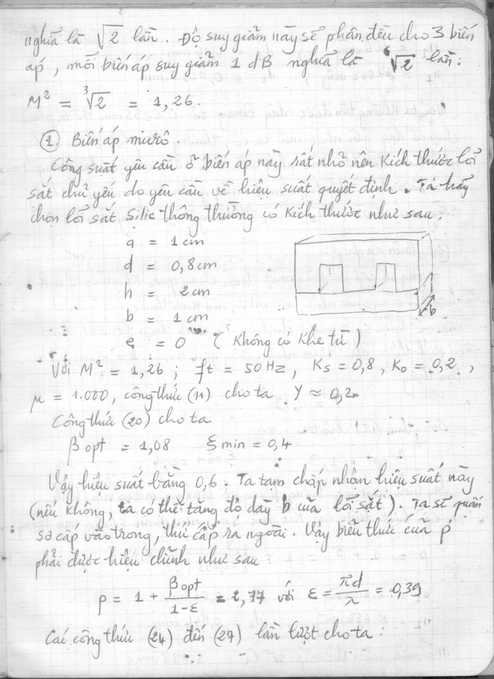 nghĩa là √2 lần. Độ suy giảm này sẽ phân đều cho 3 biến
áp, mỗi biến áp suy giảm 1 dB nghĩa là ⁶√2 lần:
M² = ³√2 = 1,26.
① Biến áp micrô.
Công suất yêu cầu ở biến áp này rất nhỏ nên kích thước lõi
sắt chủ yếu do yêu cầu về hiệu suất quyết định. Ta hãy
chọn lõi sắt Silic thông thường có kích thước như sau:
a = 1 cm
d = 0,8 cm
h = 2 cm
b = 1 cm
e = 0 (không có khe từ)
b
Với M² = 1,26 ; ft = 50 Hz, Ks = 0,8, Ko = 0,2,
μ = 1.000, công thức (11) cho ta Y ≈ 0,2
Công thức (20) cho ta
β opt = 1,08 ξ min = 0,4
Vậy hiệu suất bằng 0,6. Ta tạm chấp nhận hiệu suất này
(nếu không, ta có thể tăng độ dày b của lõi sắt). Ta sẽ quấn
sơ cấp vào trong, thứ cấp ra ngoài. Vậy biểu thức của ρ
phải được hiệu chỉnh như sau
ρ = 1 + βopt / (1-ε) = 2,77 với ε = πd / λ = 0,39
Các công thức (24) đến (27) lần lượt cho ta: